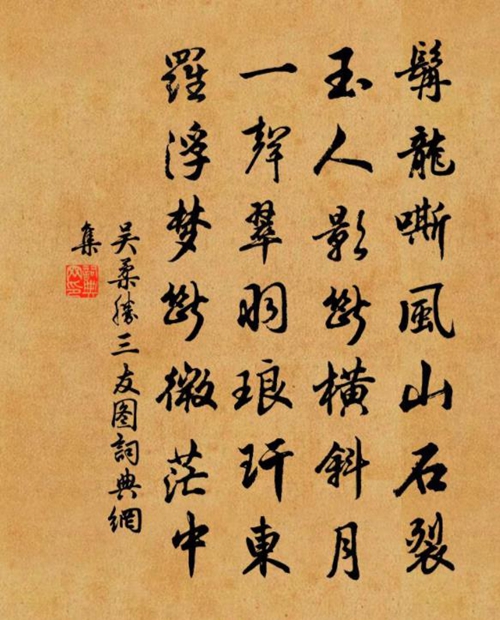 髯龍嘶風山石裂
玉人影断橫斜月
一聲翠羽琅玕東
羅浮梦断微茫中
吴柔勝三友图詞典網
集